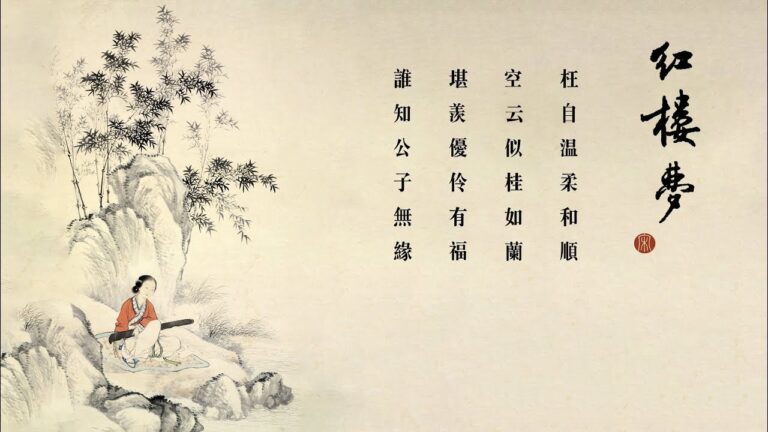 红楼夢
枉自温柔和順
空云似桂如蘭
堪羡優伶有福
誰知公子無緣